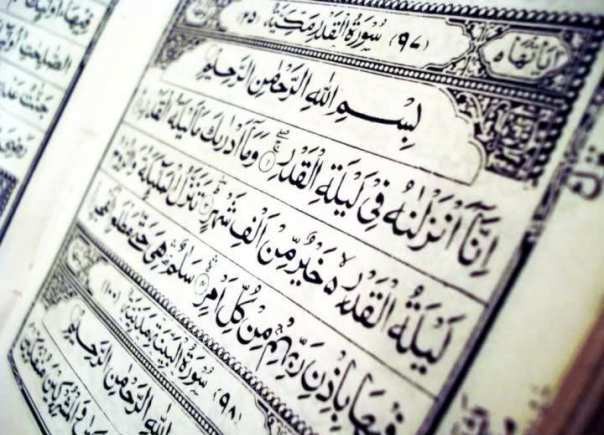 اٰيَاتُهَا ٥ (٩٧) سُوْرَةُ الْقَدْرِ مَكِّيَّةٌ (٢٥)
بِسْمِ اللهِ الرَّحْمٰنِ الرَّحِيْمِ
اِنَّاۤ اَنْزَلْنٰهُ فِيْ لَيْلَةِ الْقَدْرِ ۚۖ ١ وَمَاۤ اَدْرٰىكَ مَا لَيْلَةُ الْقَدْرِ
لَيْلَةُ الْقَدْرِ ۙ خَيْرٌ مِّنْ اَلْفِ شَهْرٍ تَنَزَّلُ الْمَلٰٓئِكَةُ وَالرُّوْحُ
فِيْهَا بِاِذْنِ رَبِّهِمْ مِنْ كُلِّ اَمْرٍ سَلٰمٌ هِيَ حَتّٰى مَطْلَعِ الْفَجْرِ
(٩٨) سُوْرَةُ الْبَيِّنَةِ مَدَنِيَّةٌ (١٠٠)
اللهِ الرَّحْمٰنِ الرَّحِيْمِ